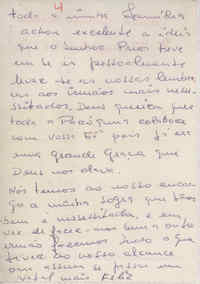 4
toda a minha família
achou excelente a idéia
que o Senhor Prior teve
em se ir pessoalmente
levar as nossas lembran
aos irmãos mais neces-
sitados. Deus queira que
toda a Paróquia colabore
com vossa pois já era
uma grande Graça que
Deus nos dava.
Nós temos ao nosso encar
a minha sogra que
bem é necessitada, e em
vez de a um outro
irmão fazemos tudo o que
ao nosso alcance
assim se passa um
Natal mais Feliz